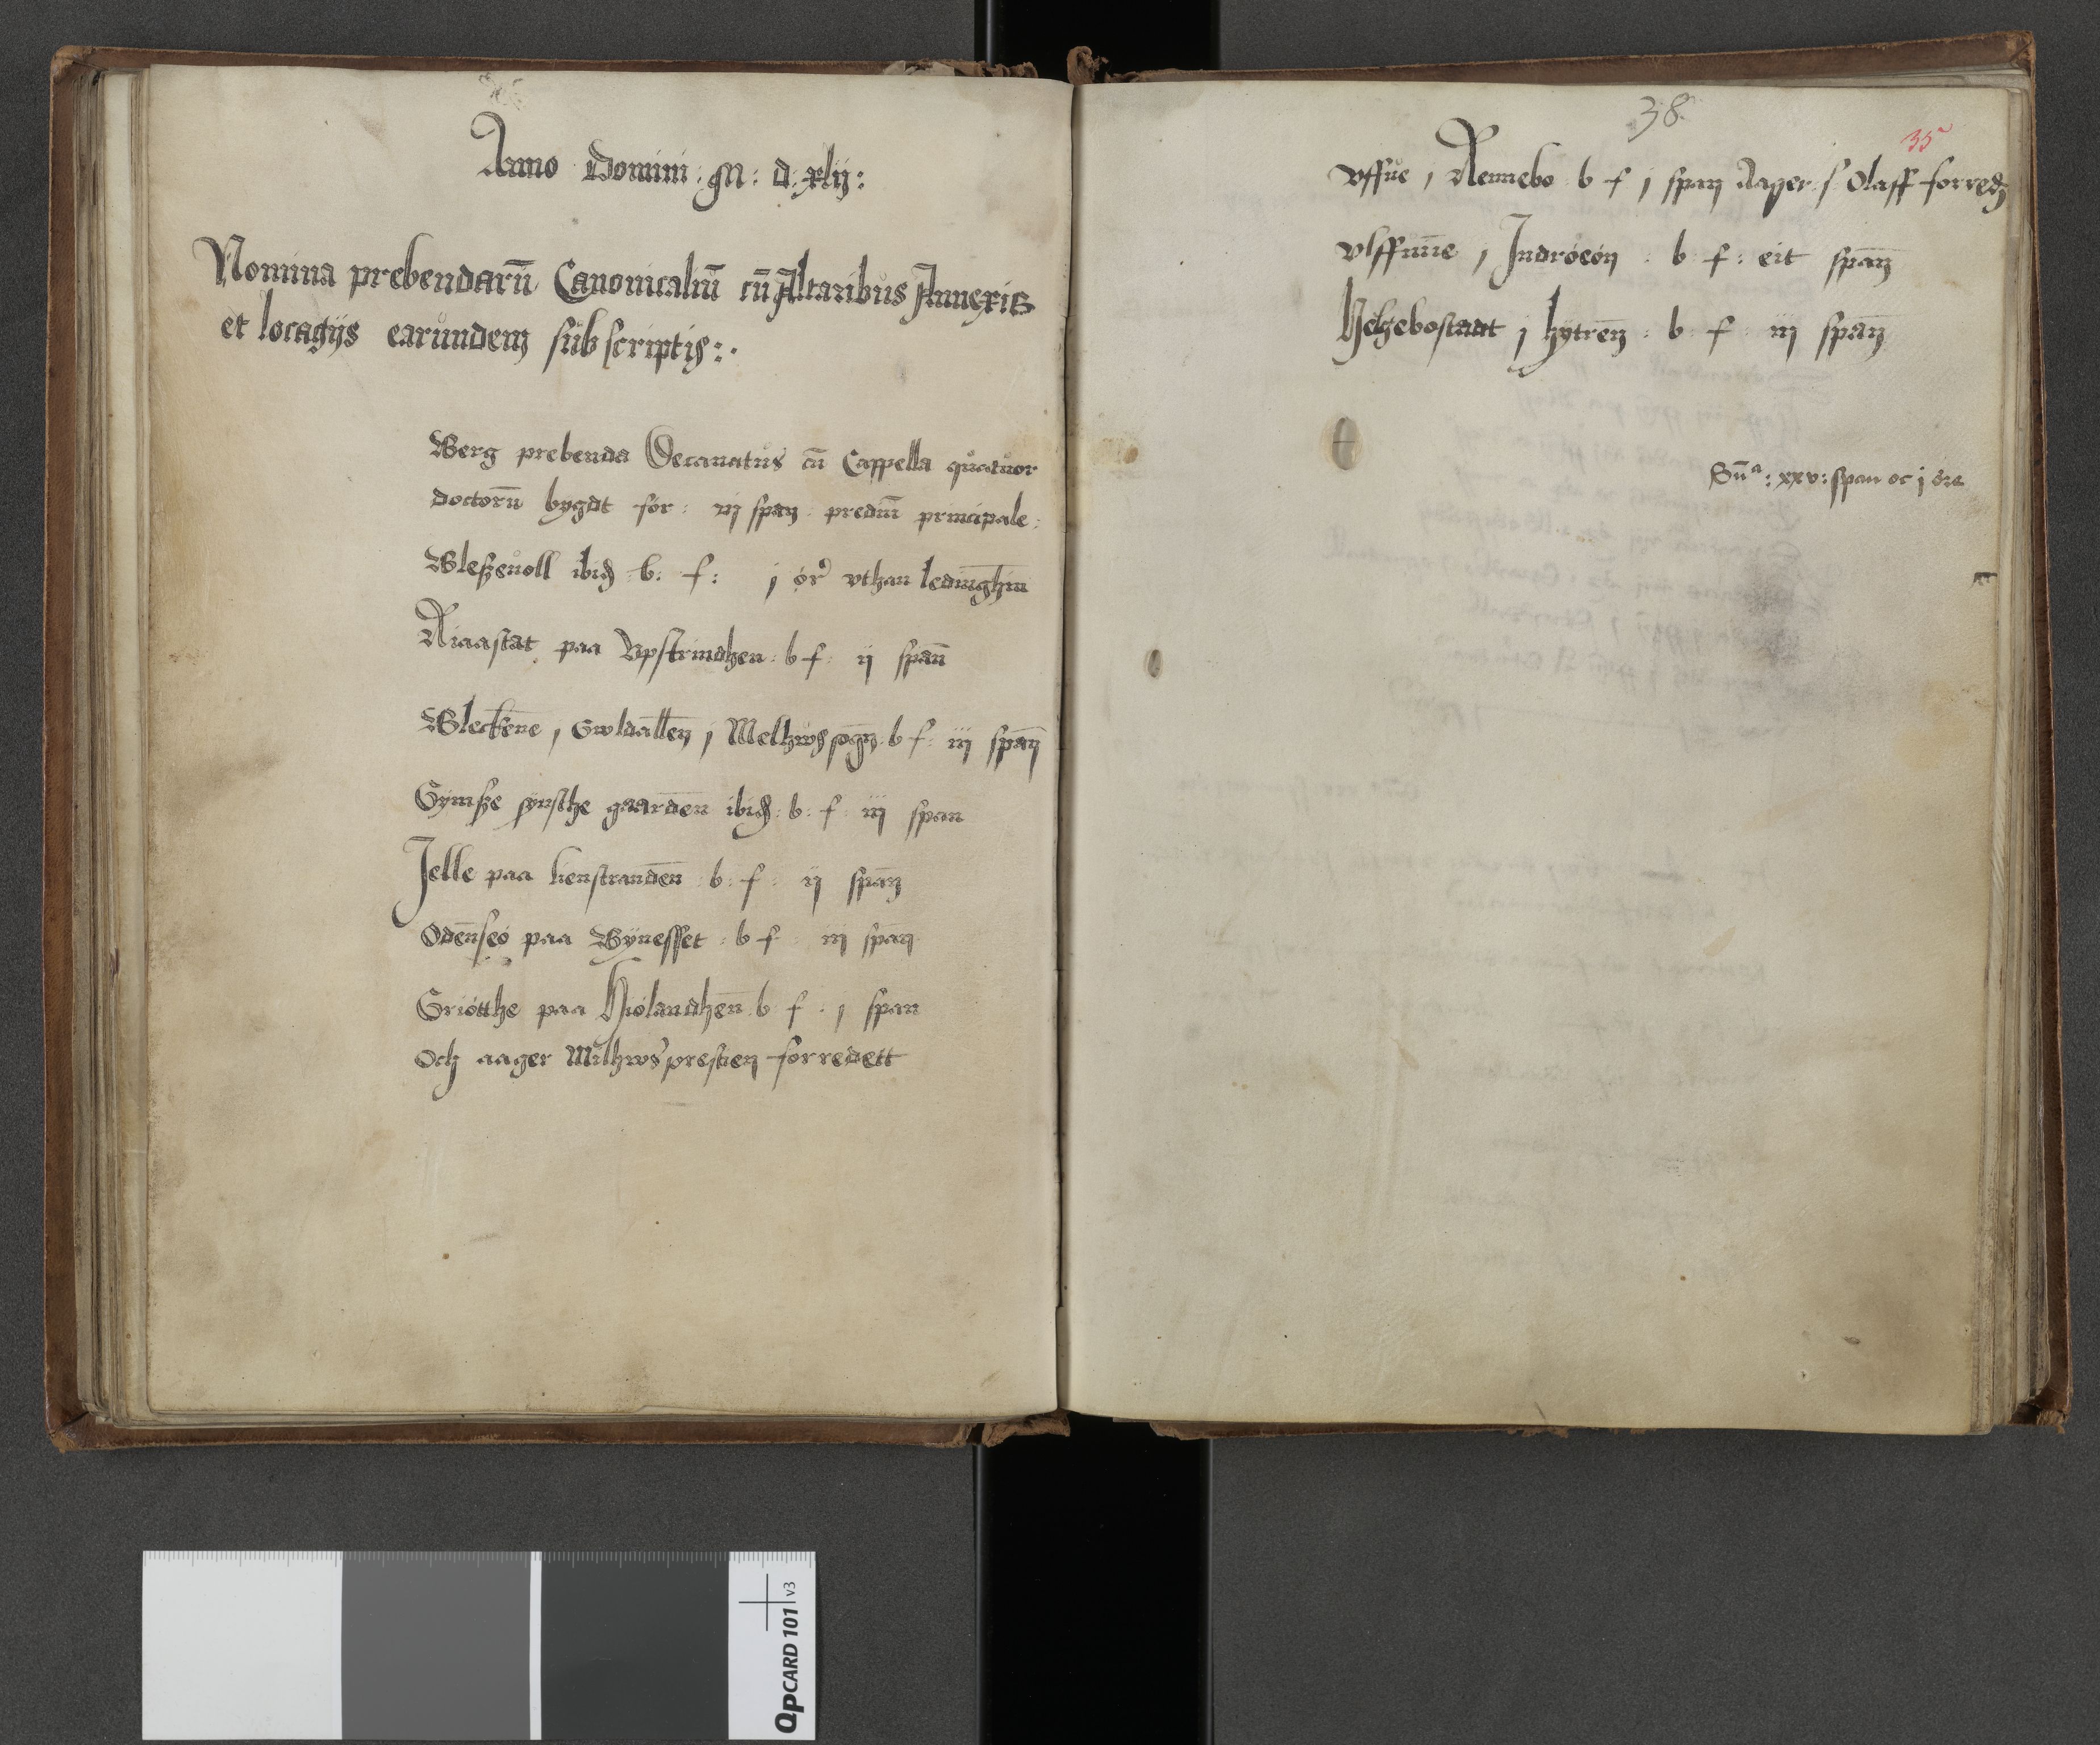 Anno Domini : M : d : xlij :
Nomina prebendarū Canonicaliū cū Altaribus Annexis
et locagijs earundem subscriptis : ·
Berg prebenda Decanatus cū Cappella quatuor
doctorū bygdt for : vj span : prediū principale :
Bleszeuoll ibid : b : f : j ör uthan ledinghin
Riaastat paa Vpstrindhen : b f : ij spañ
Bleckene j Gwldallen j Melhws sogn : b f : iij span
Gymsze synsthe gaarden ibid : b : f : iij span
Jelle paa lienstranden : b : f : ij span
Odenseö paa Bynesset : b f : iij span
Griötthe paa Hiölandhen b f : j span
Och aager Milhws presten forredett
38.
35
Vffue j Rennebo b f j span Aager s Olaff forred
Vlffmne j Indröeön : b : f : eit span
Helgebostaat j hytren : b : f : iij span
Sūᵃ : xxv : span oc j öre
QPCARD 101 v3